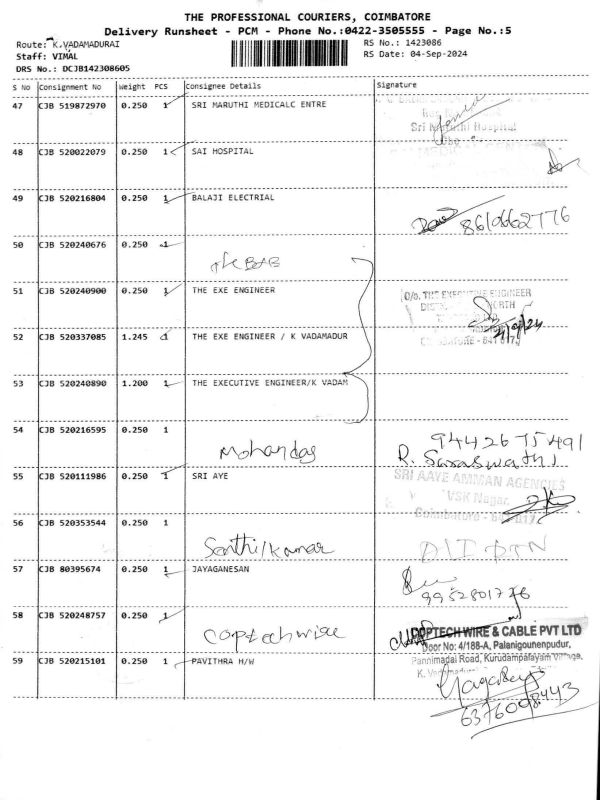 THE PROFESSIONAL COURIERS, COIMBATORE
Delivery Runsheet - PCM - Phone No.:0422-3505555 - Page No.:5
Route: K.VADAMADURAI
Staff: VIMAL
DRS No.: DCJB142308605
RS No.: 1423086
RS Date: 04-Sep-2024
S No Consignment No Weight PCS Consignee Details Signature
47 CJB 519872970 0.250 1 SRI MARUTHI MEDICALC ENTRE
Sri Maruthi Hospital
48 CJB 520022079 0.250 1 SAI HOSPITAL
49 CJB 520216804 0.250 1 BALAJI ELECTRIAL
8610662776
50 CJB 520240676 0.250 1
51 CJB 520240900 0.250 1 THE EXE ENGINEER
O/o. THE EXECUTIVE ENGINEER
NORTH
52 CJB 520337085 1.245 1 THE EXE ENGINEER / K VADAMADUR
COIMBATORE - 641 017
53 CJB 520240890 1.200 1 THE EXECUTIVE ENGINEER/K VADAM
54 CJB 520216595 0.250 1 Mohandas
9442675491
R. Saraswathi
55 CJB 520111986 0.250 1 SRI AYE
SRI AAYE AMMAN AGENCIES
VSK Nagar,
Coimbatore - 641 017
56 CJB 520353544 0.250 1 Senthilkumar
57 CJB 80395674 0.250 1 JAYAGANESAN
9952801776
58 CJB 520248757 0.250 1 Coptechwire
COPTECH WIRE & CABLE PVT LTD
Door No: 4/188-A, Palanigounenpudur,
Pannimadai Road, Kurudampalayam Village,
59 CJB 520215101 0.250 1 PAVITHRA H/W
6376098443